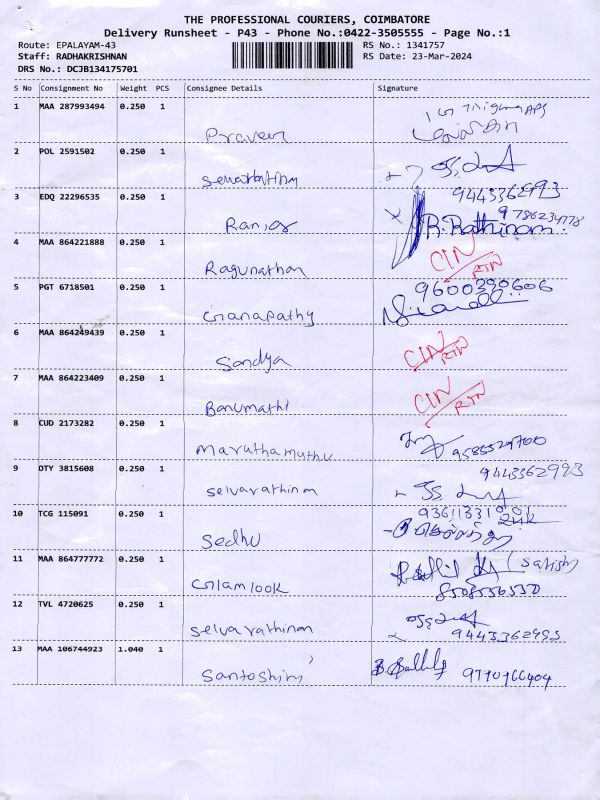 THE PROFESSIONAL COURIERS, COIMBATORE
Delivery Runsheet - P43 - Phone No.:0422-3505555 - Page No.:1
Route: EPALAYAM-43 RS No.: 1341757
Staff: RADHAKRISHNAN RS Date: 23-Mar-2024
DRS No.: DCJB134175701
S No Consignment No Weight PCS Consignee Details Signature
1 MAA 287993494 0.250 1
Praveen
2 POL 2591502 0.250 1
selvarathinam
9443362993
3 EDQ 22296535 0.250 1
9786234778
Ranjos R. Rathinam.
4 MAA 864221888 0.250 1
Ragunathan CIN RTN
5 PGT 6718501 0.250 1 9600390606
Ganapathy
6 MAA 864249439 0.250 1
Sandya CIN RTN
7 MAA 864223409 0.250 1
Banumathi CIN RTN
8 CUD 2173282 0.250 1
Maruthamuthu 9585529700
9 DTY 3815608 0.250 1 9443362993
selvarathinam
10 TCG 115091 0.250 1
Sedhu
11 MAA 864777772 0.250 1 (Satish)
Glamlook 8508556550
12 TVL 4720625 0.250 1
selvarathinam 9443362993
13 MAA 106744923 1.040 1
Santoshini 9790966404